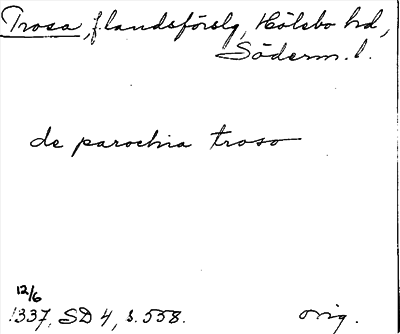 Trosa, f. landsförslg, Hölebo hd,
Söderm. l.
de parochia troso
12/6
1337, SD 4, s. 558. orig.